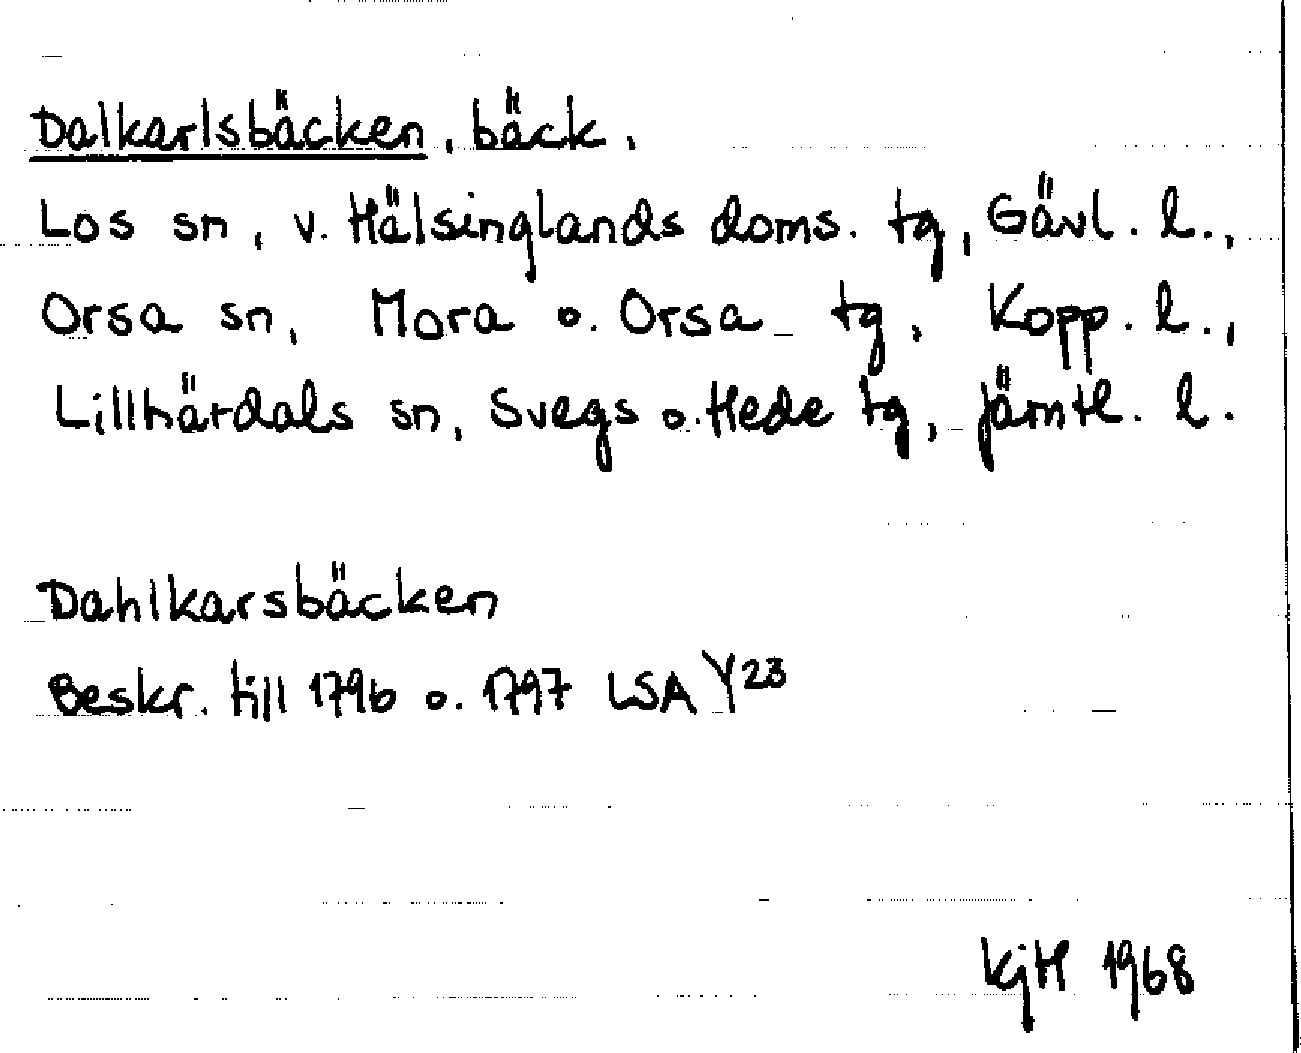 Dalkarlsbäcken, bäck,
Los sn, v. Hälsinglands doms. tg, Gävl. l.,
Orsa sn, Mora o. Orsa tg, Kopp. l.,
Lillhärdals sn, Svegs o. Hede tg, Jämtl. l.
Dahlkarsbäcken
Beskr. till 1796 o. 1797 LSA Y23
KjH 1968